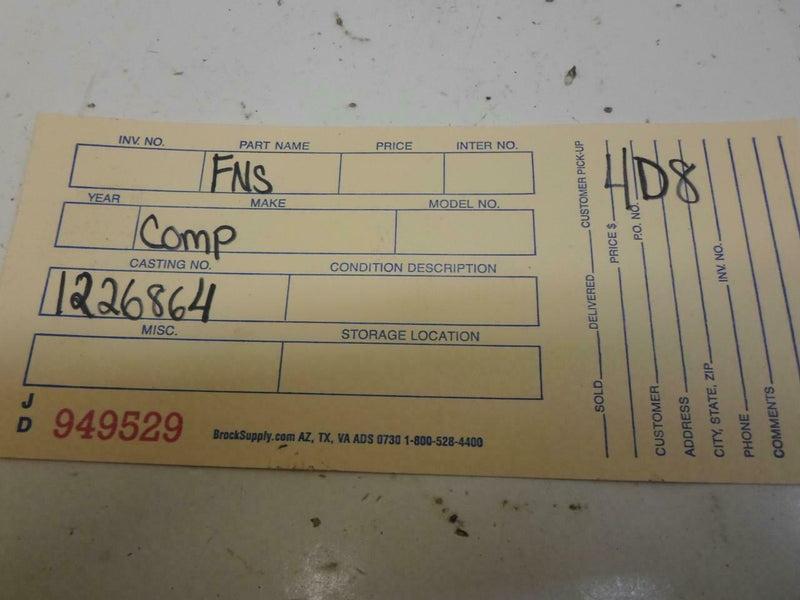 INV. NO. PART NAME PRICE INTER NO.
FNS
YEAR MAKE MODEL NO.
Comp
CASTING NO. CONDITION DESCRIPTION
1226864
MISC. STORAGE LOCATION
J
D 949529
BrockSupply.com AZ, TX, VA ADS 0730 1-800-528-4400
4D8
SOLD DELIVERED CUSTOMER PICK-UP
PRICE $
P.O. NO.
CUSTOMER
ADDRESS
CITY, STATE, ZIP INV. NO.
PHONE
COMMENTS